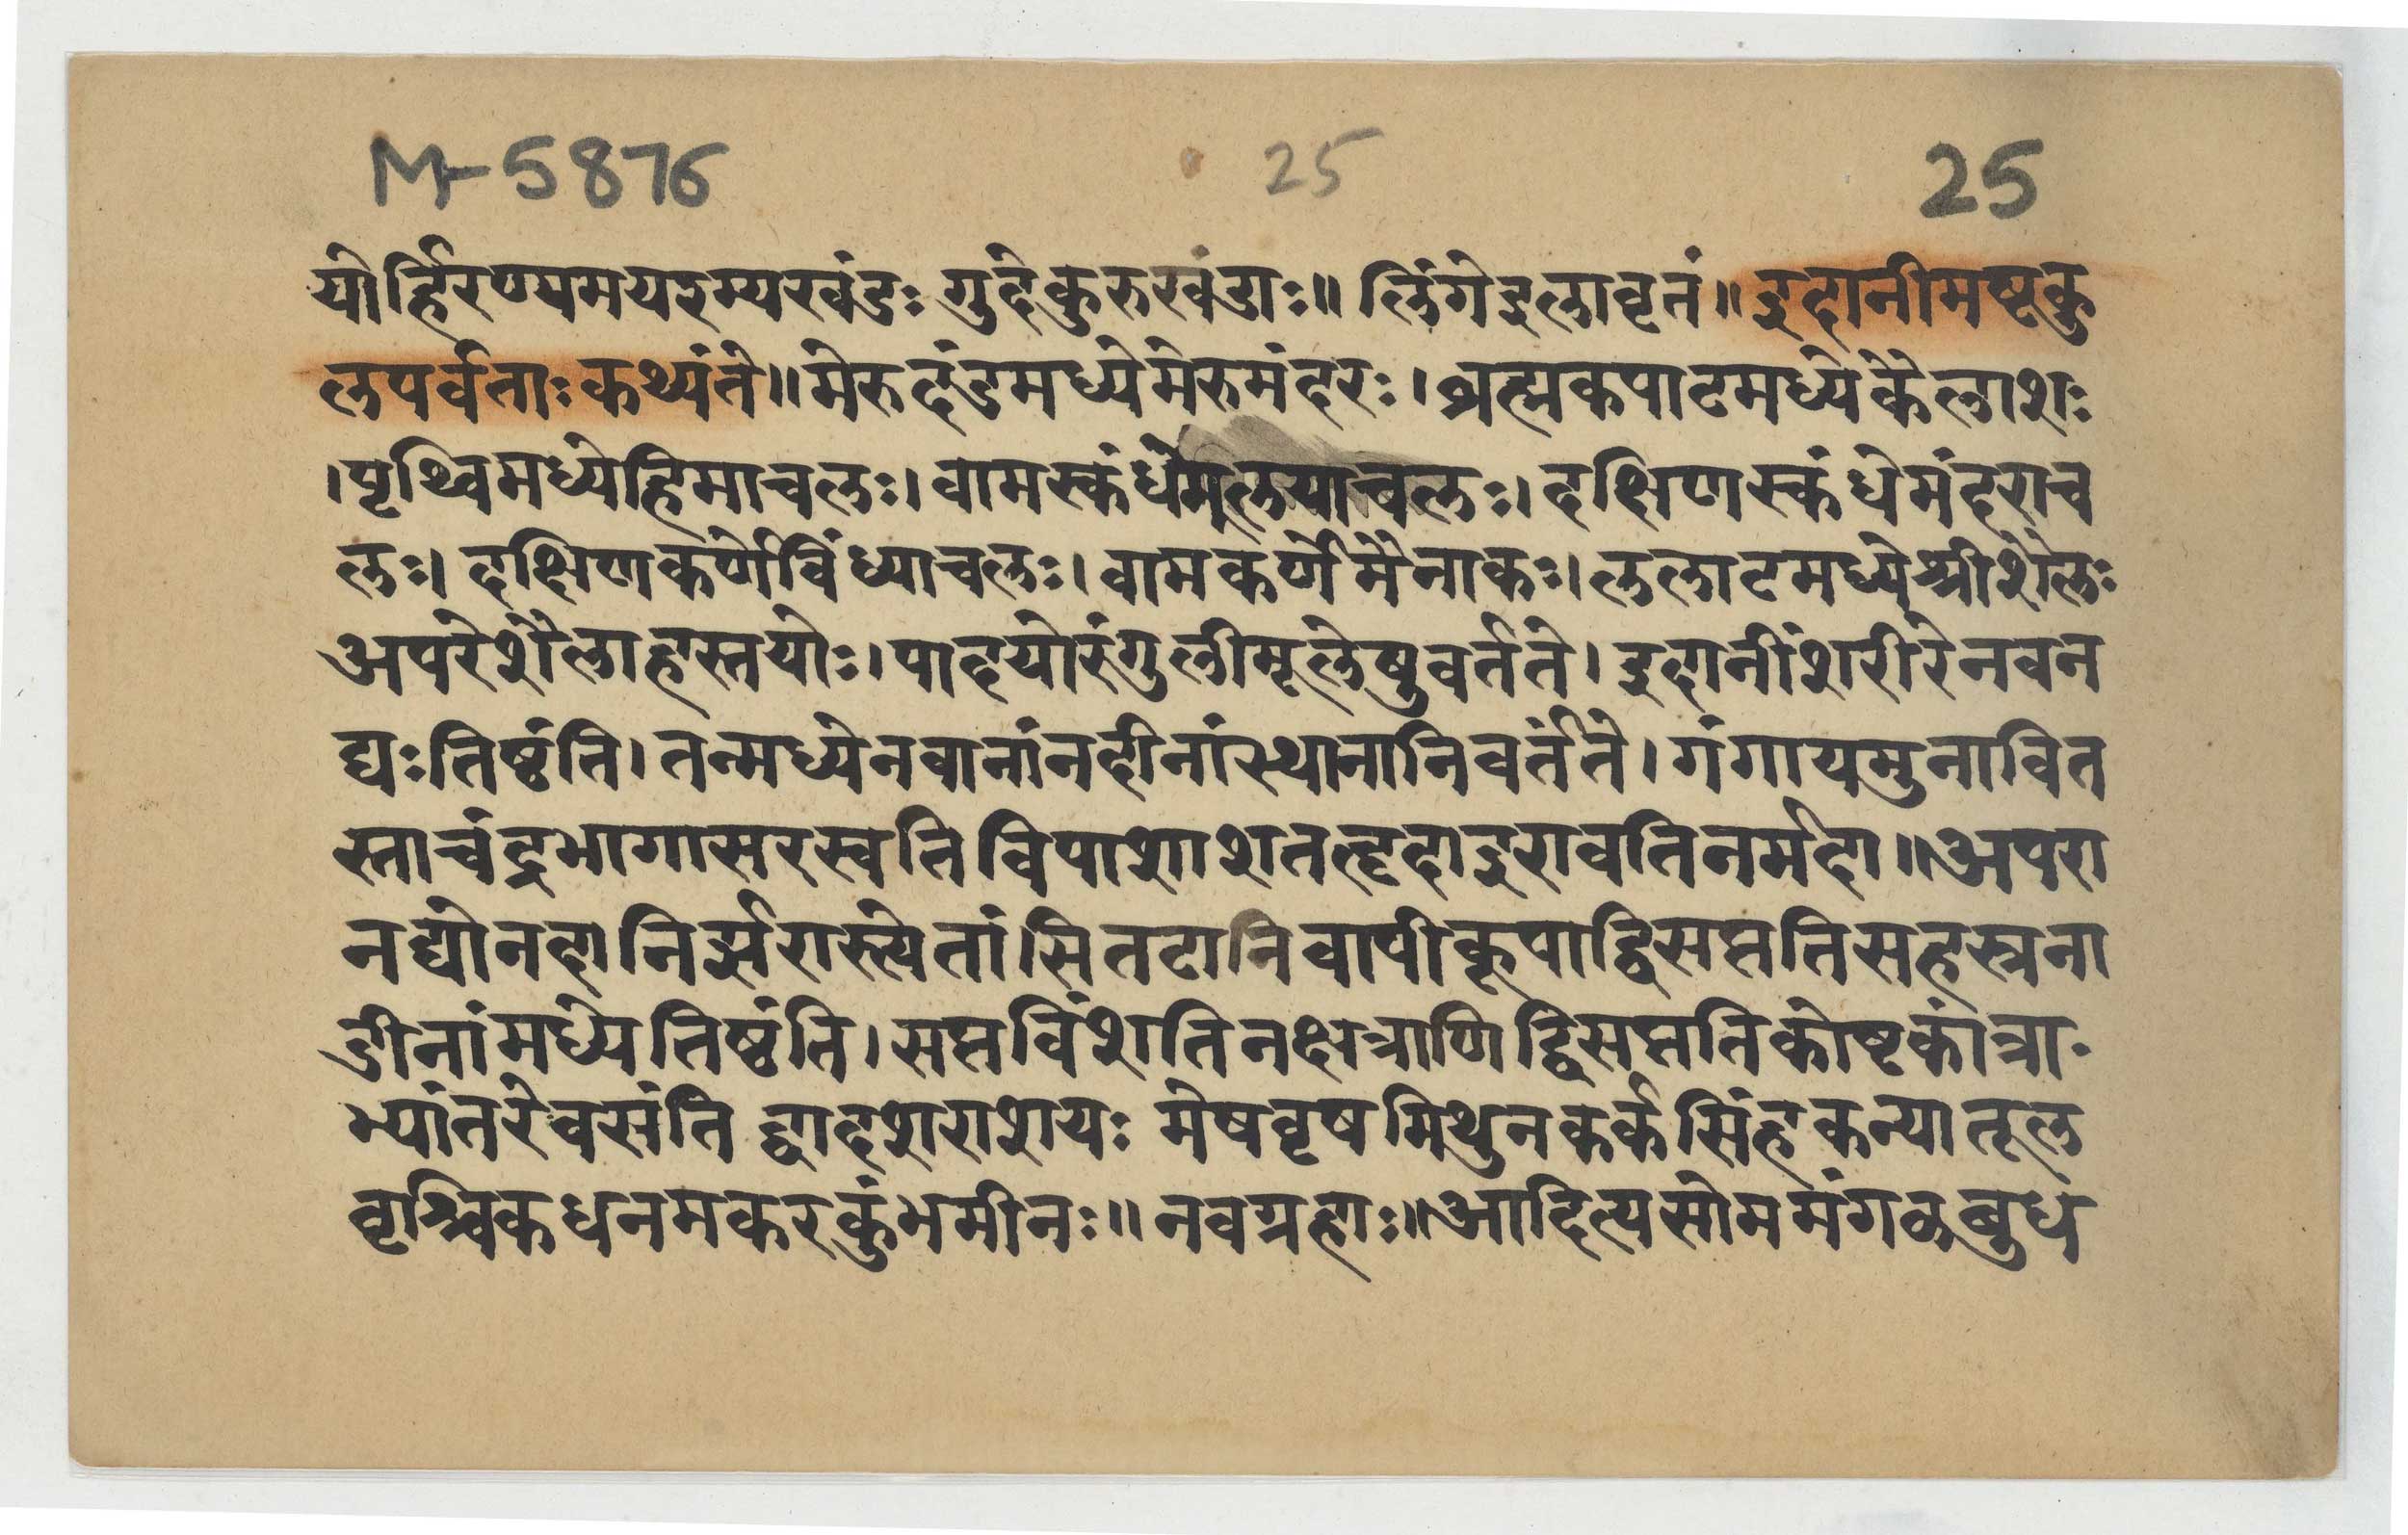 M-5876 25 25
योर्हिरण्यमयरम्यखंडः गुदेकुरुखंडाः॥ लिंगेइलावृतं॥ इदानीमष्टकु
लपर्वताः कथ्यंते॥ मेरुदंडमध्येमेरुमंदरः। ब्रह्मकपाटमध्येकैलाशः
। पृथ्विमध्येहिमाचलः। वामस्कंधेमलयाचलः। दक्षिणस्कंधेमंदराच
लः। दक्षिणकर्णेविंध्याचलः। वामकर्णेमैनाकः। ललाटमध्येश्रीशैलः
अपरेशैलाहस्तयोः। पादयोरंगुलीमूलेषुवर्तते। इदानींशरीरेनवन
द्यः तिष्ठंति। तन्मध्येनवानांनदीनांस्थानानिवर्तंते। गंगायमुनावित
स्ताचंद्रभागासरस्वतिविपाशाशतत्हृदाइरावतिनर्मदा॥ अपरा
नद्योनदानिर्झरास्त्येतांसितटानिवापीकूपाद्विसप्ततिसहस्त्रना
डीनांमध्येतिष्ठंति। सप्तविंशतिनक्षत्राणिद्विसप्ततिकोष्टकांत्रा
भ्यांतरेवसंति द्वादशराशयः मेषवृषमिथुनकर्कसिंहकन्यातूल
वृश्चिकधनमकरकुंभमीनः॥ नवग्रहाः॥ आदित्यसोममंगळबुध